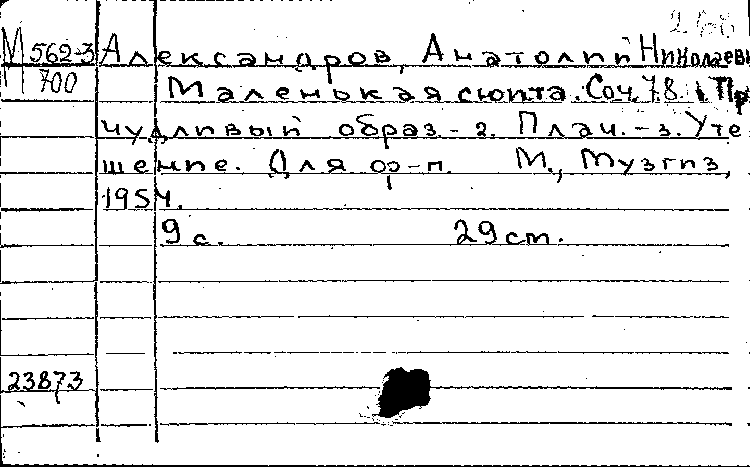 М 562-3 Александров, Анатолий Николаеви
700 Маленькая сюита. Соч. 78. 1. Пр
чудливый образ.- 2. Плач. - 3. Уте
шение. Для ф-п. М., Музгиз,
1954.
9 с. 29 см.
23873